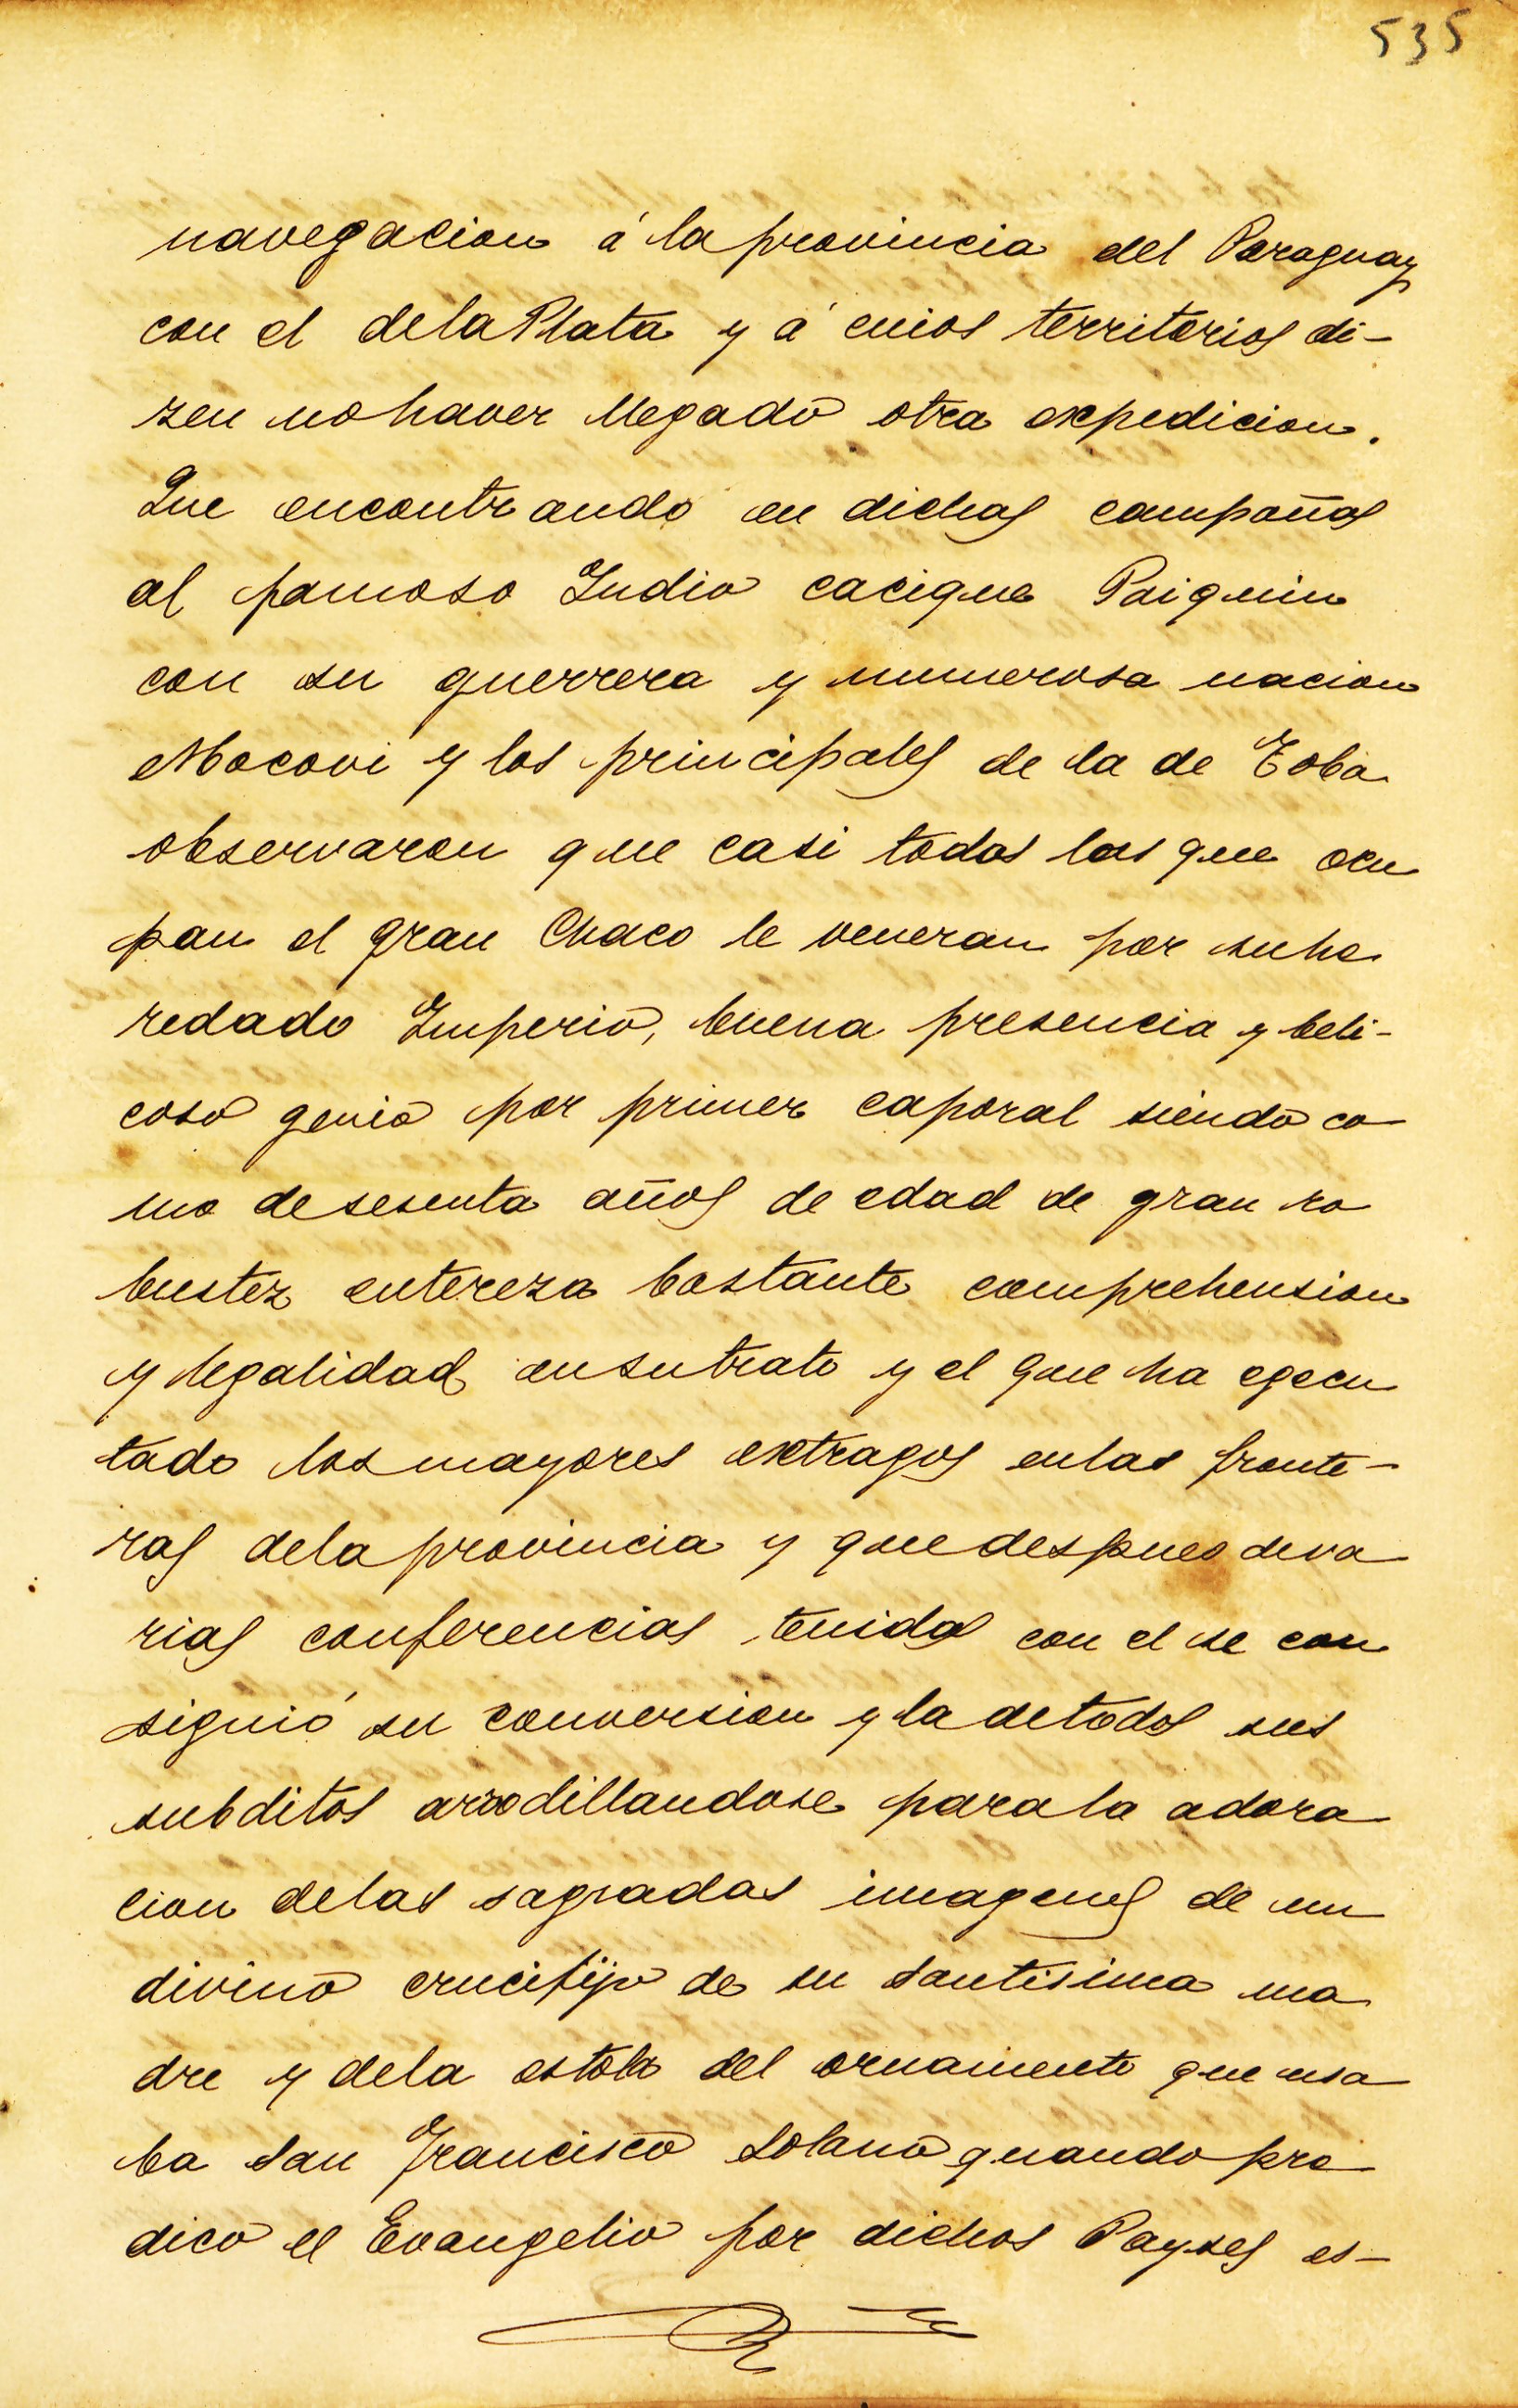 535
navegacion á la provincia del Paraguay
con el dela Plata y á cuios territorios di-
zen no haver llegado otra expedicion.
Que encontrando en dichas campañas
al famoso Indio cacique Paiquin
con su guerrera y numerosa nacion
Mocovi y los principales de la de Toba
observaron que casi todos los que ocu
pan el gran Chaco le veneran por su he
redado Imperio, buena presencia y beli-
coso genio por primer caporal siendo co
mo de sesenta años de edad de gran ro
bustez entereza bastante comprehension
y legalidad en su trato y el que ha egecu
tado los mayores extragos en las fronte-
ras dela provincia y que despues de va
rias conferencias tenidas con el se con
siguió su conversion y la de todos sus
subditos arrodillandose para la adora
cion delas sagradas imagenes de un
divino crucifijo de su santisima ma
dre y dela estola del ornamento que usa
ba San Francisco Solano quando pre
dico el Evangelio por dichos Payses es-